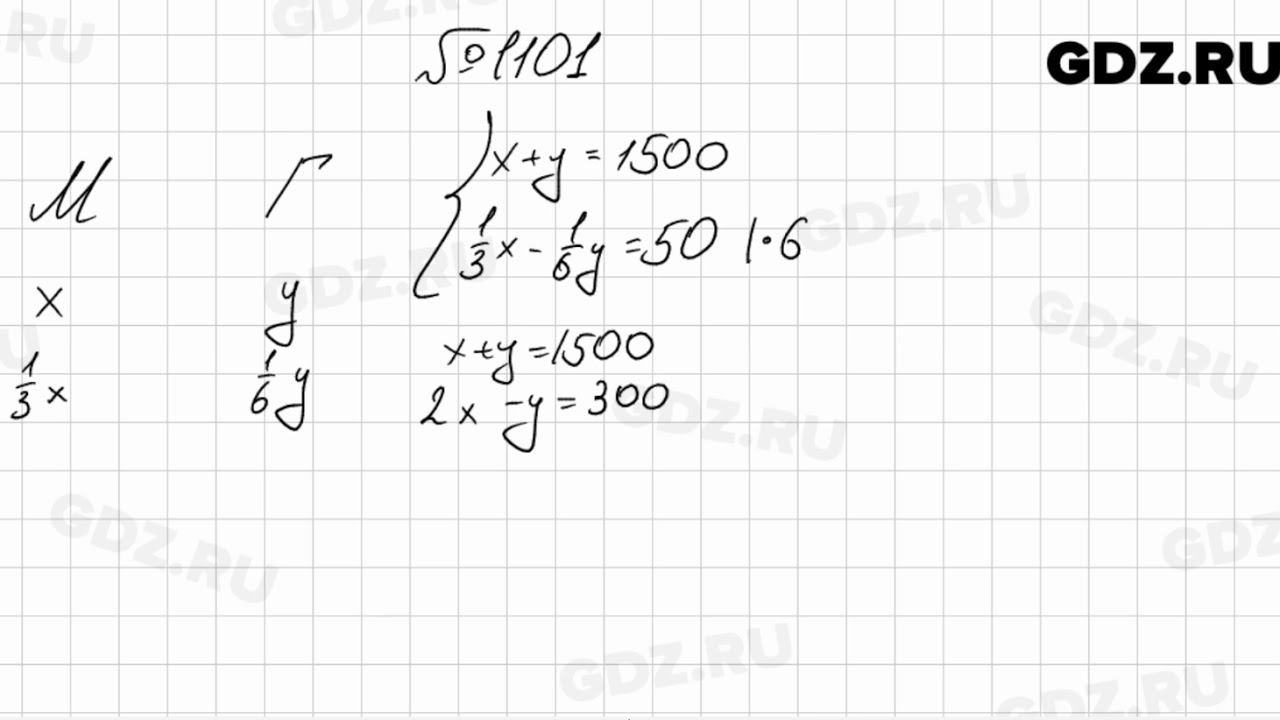 №1101
GDZ.RU
М Г
x y
1/3 x 1/6 y
{ x + y = 1500
1/3 x - 1/6 y = 50 | · 6
x + y = 1500
2x - y = 300
GDZ.RU
GDZ.RU
GDZ.RU
GDZ.RU
GDZ.RU
GDZ.RU
GDZ.RU
GDZ.RU
GDZ.RU
GDZ.RU